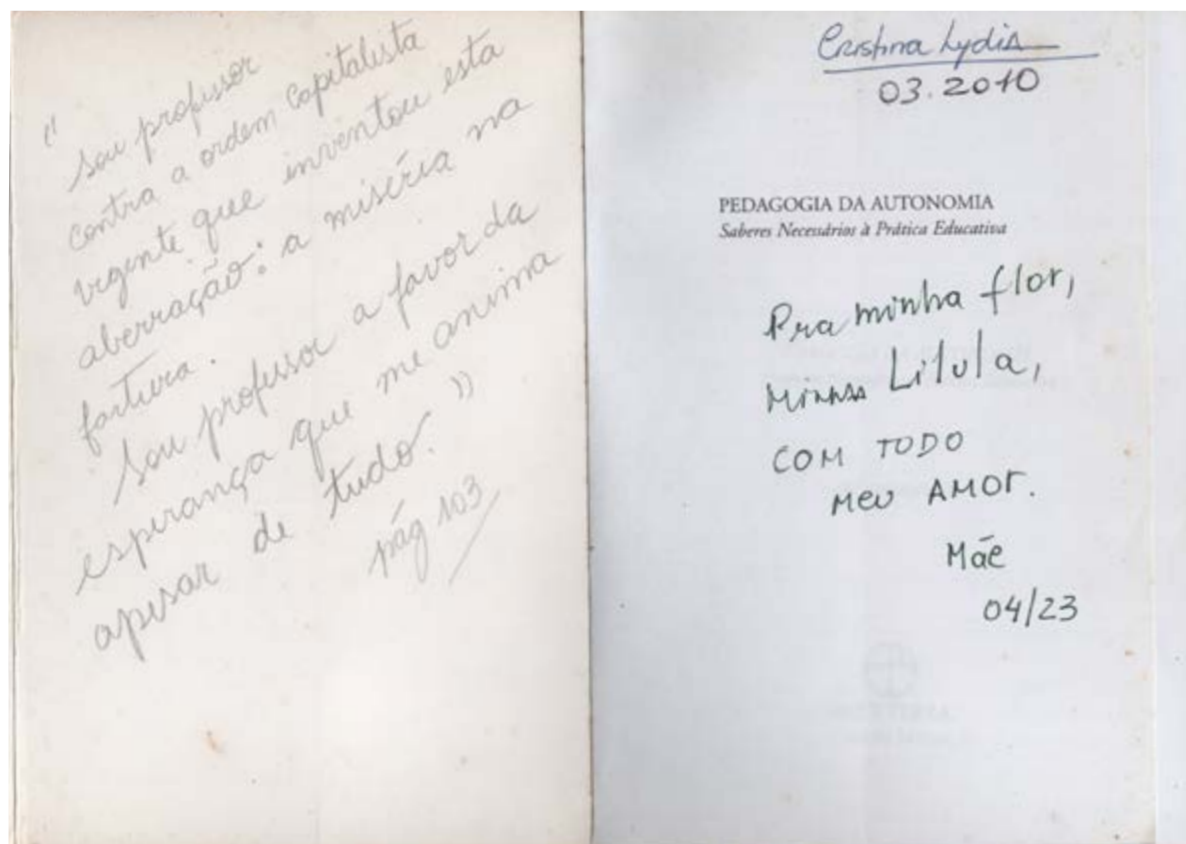 "Sou professor
contra a ordem capitalista
vigente que inventou esta
aberração: a miséria na
fartura.
Sou professor a favor da
esperança que me anima
apesar de tudo."
pág 103
Cristina Lydia
03.2010
PEDAGOGIA DA AUTONOMIA
Saberes Necessários à Prática Educativa
Pra minha flor,
Minha Lilula,
COM TODO
MEU AMOr.
Mãe
04/23